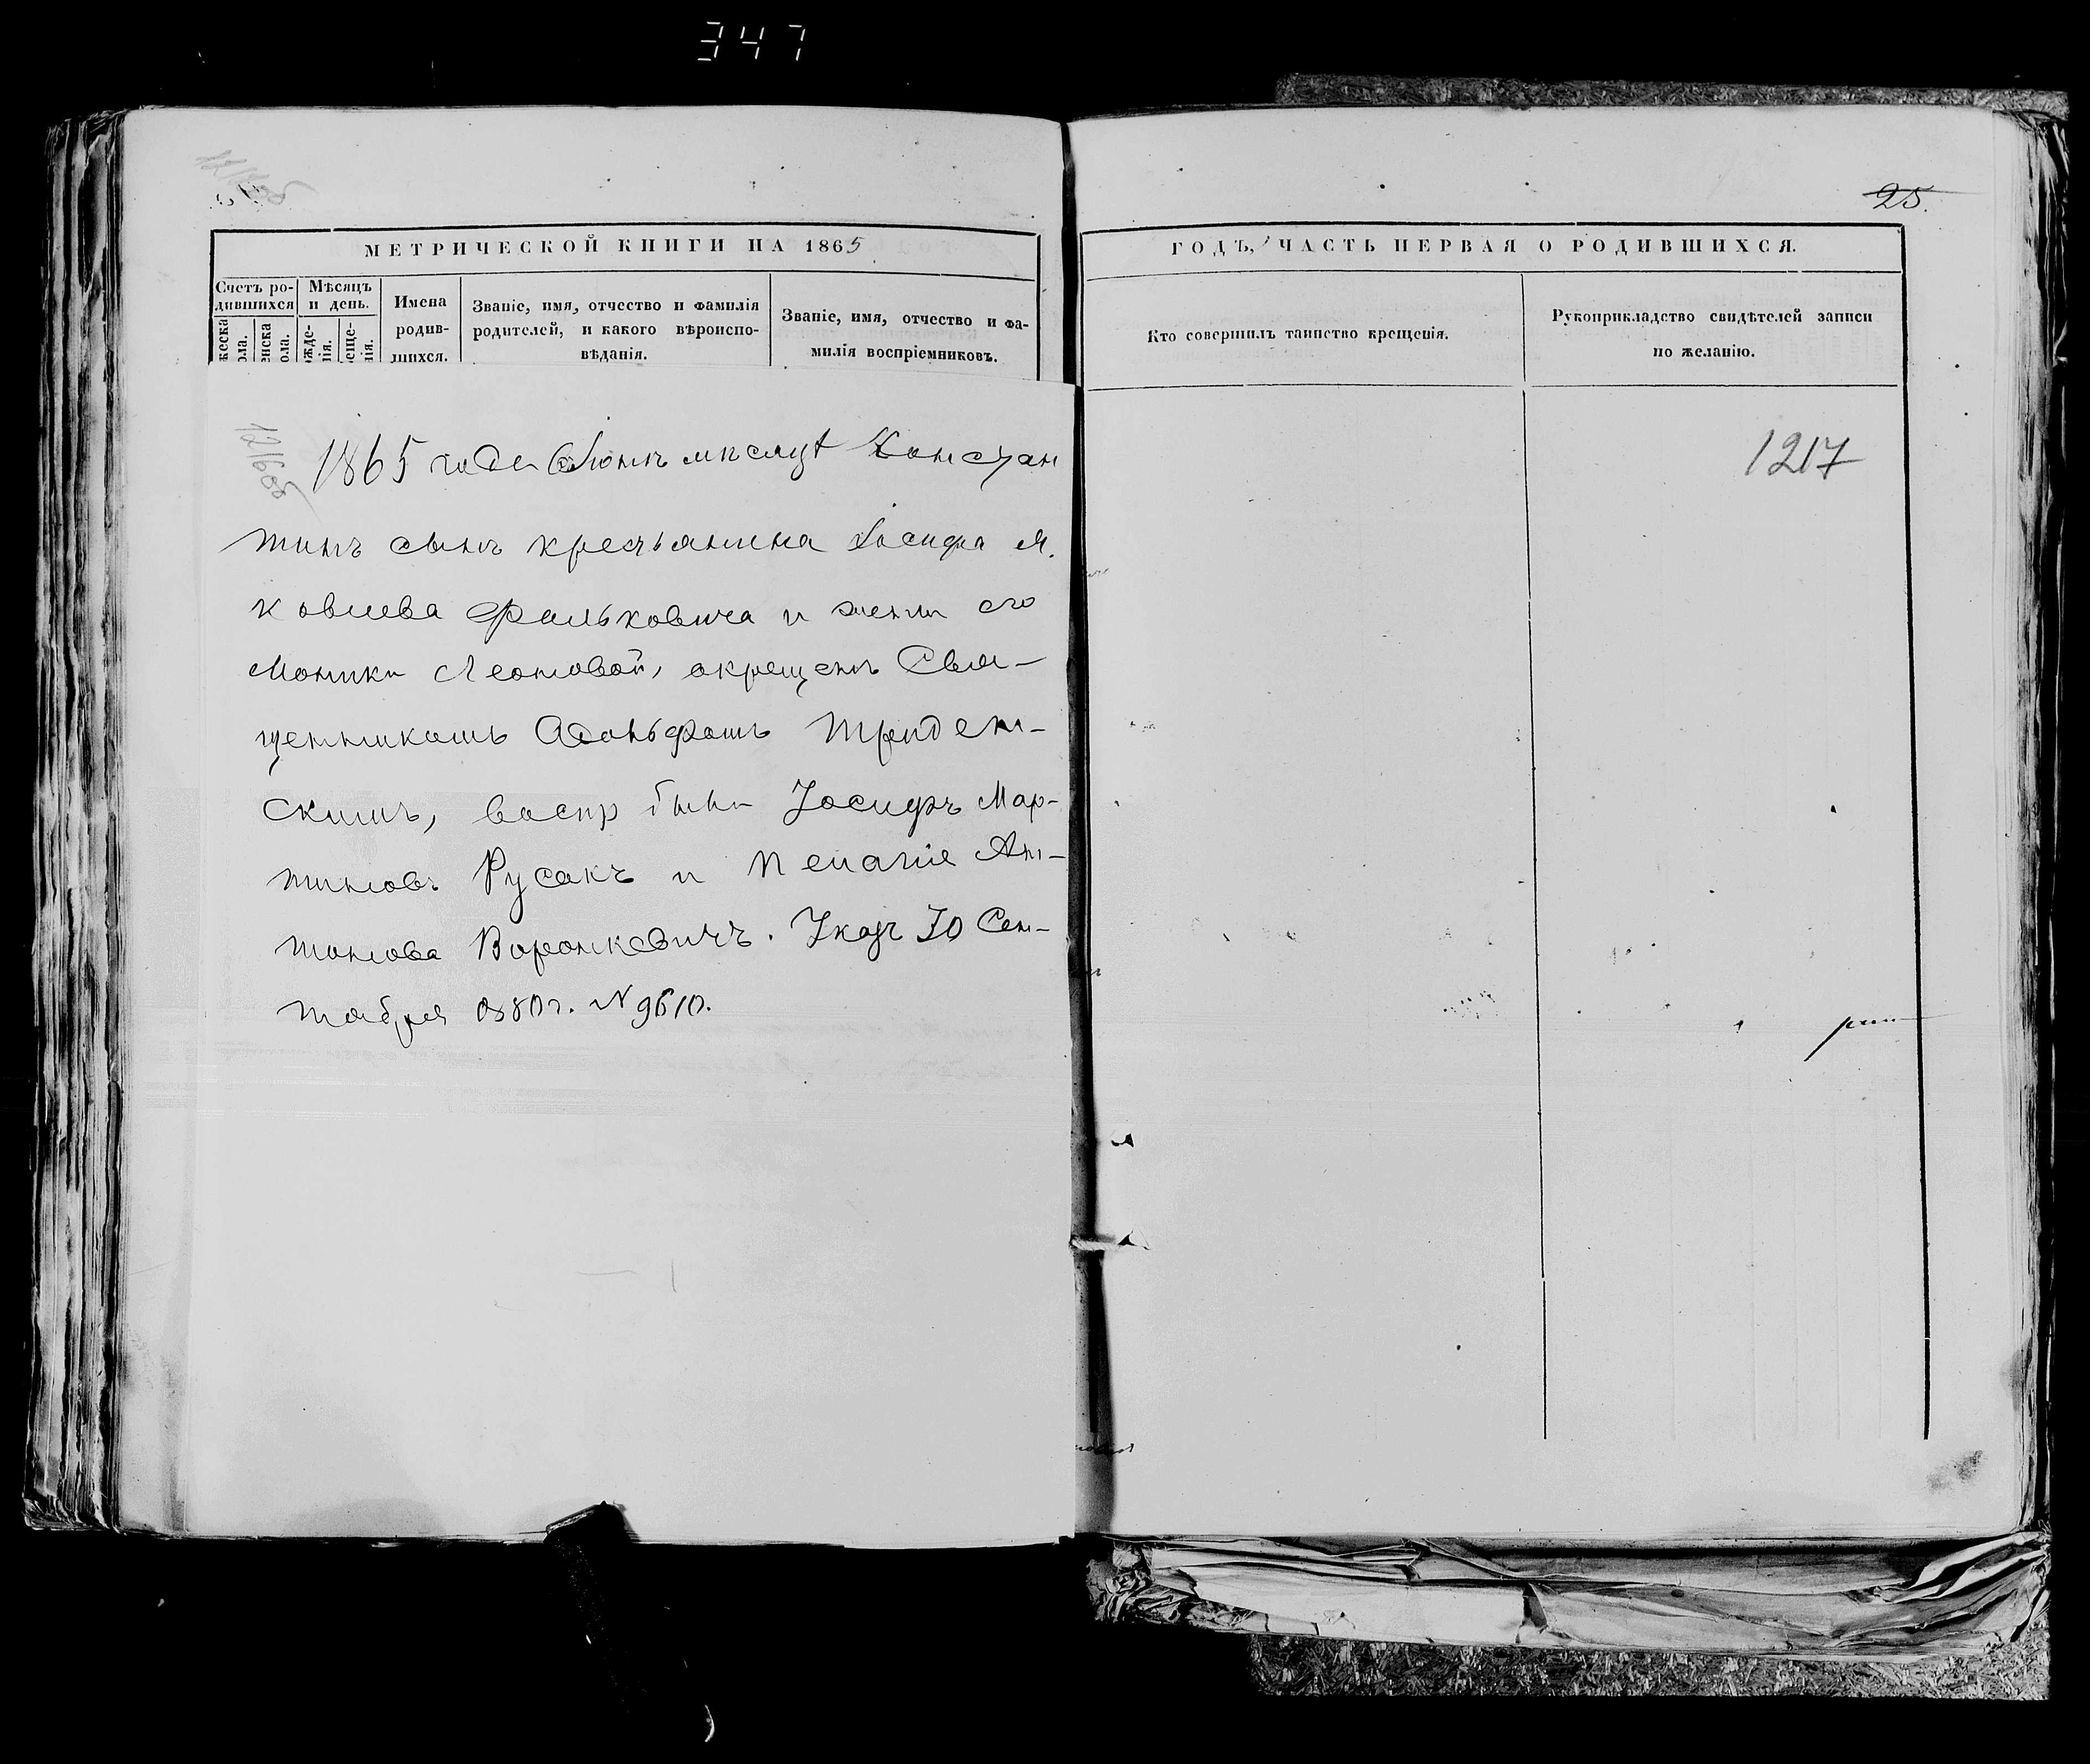 347
25.
МЕТРИЧЕСКОЙ КНИГИ НА 1865
ГОДЪ, ЧАСТЬ ПЕРВАЯ О РОДИВШИХСЯ.
Счетъ ро-
дившихся
Мѣсяцъ
и день.
Имена
родив-
шихся.
Званіе, имя, отчество и фамилія
родителей, и какого вѣроиспо-
вѣданія.
Званіе, имя, отчество и фа-
милія воспріемниковъ.
Кто совершилъ таинство крещенія.
Рукоприкладство свидѣтелей записи
по желанію.
1216об
1217
1865 года Іюнѣ мѣсяцѣ Констан
тинъ сынъ крестьянина Іосифа Я.
ковлева Фальковича и жены его
Моники Леоновой, окрещенъ Свя-
щенникомъ Адольфомъ Триден-
скимъ, воспр были Іосифъ Мар-
тиновъ Русакъ и Пелагіе Ан-
тонова Воронкевичъ. Указъ 30 Сен-
тября 1880г. N 9610.